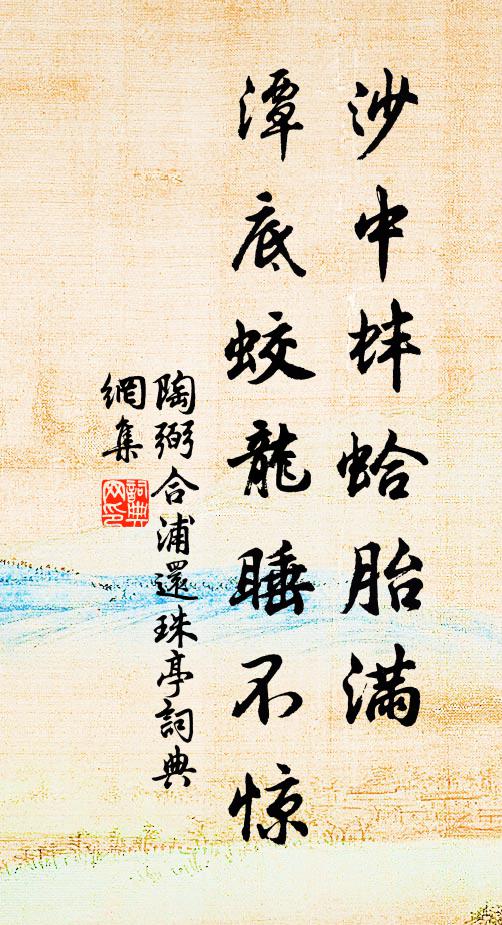 沙中蚌蛤胎满
潭底蛟龍睡不惊
陶弼合浦還珠亭詞典
網集
詞典网印